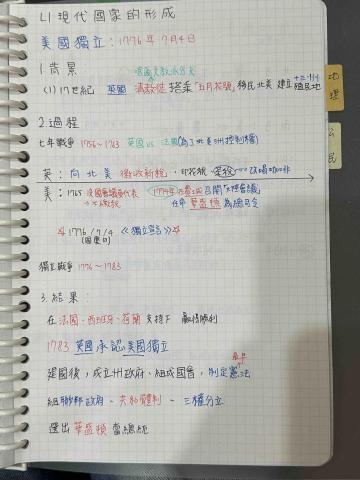 L1 現代國家的形成
美國獨立：1776年7月4日
1.背景
(1)17世紀 英國 清教徒 搭乘「五月花號」移民北美 建立 殖民地
地理
公民
2.過程
七年戰爭 1756~1763 英國 vs 法國 (為了北美洲控制權)
英：向北美 徵收新稅，印花稅、茶稅 改喝咖啡
美：1765 沒國會議員代表 1774年 召開「大陸會議」
→不繳稅 任命 華盛頓 為總司令
1776/7/4 《獨立宣言》
(國慶日)
獨立戰爭 1776~1783
3.結果：
在 法國、西班牙、荷蘭 支持下 贏得勝利
1783 英國承認美國獨立
建國後，成立州政府、組成國會，制定憲法
組聯邦政府、共和體制、三權分立
選出華盛頓當總統